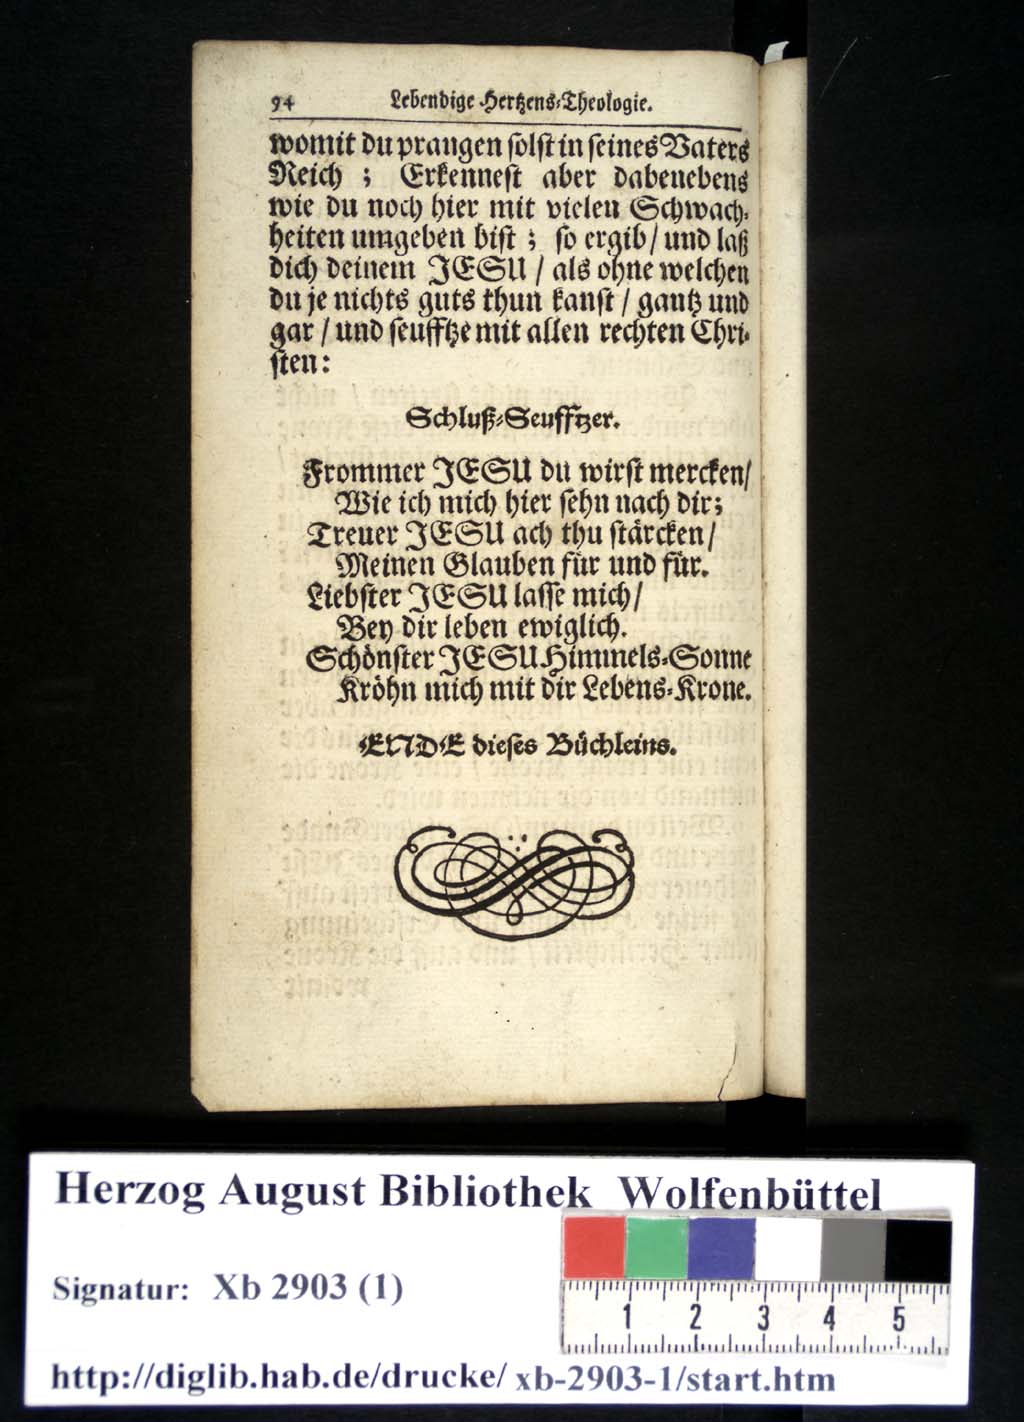 94 Lebendige Hertzens-Theologie.
womit du prangen solst in seines Vaters
Reich ; Erkennest aber dabenebens
wie du noch hier mit vielen Schwach-
heiten umgeben bist ; so ergib / und laß
dich deinem JESU / als ohne welchen
du je nichts guts thun kanst / gantz und
gar / und seufftze mit allen rechten Chri-
sten:
Schluß-Seufftzer.
Frommer JESU du wirst mercken/
Wie ich mich hier sehn nach dir;
Treuer JESU ach thu stärcken/
Meinen Glauben für und für.
Liebster JESU lasse mich/
Bey dir leben ewiglich.
Schönster JESU Himmels-Sonne
Kröhn mich mit dir Lebens-Krone.
ENDE dieses Büchleins.
Herzog August Bibliothek Wolfenbüttel
Signatur: Xb 2903 (1)
1 2 3 4 5
http://diglib.hab.de/drucke/ xb-2903-1/start.htm